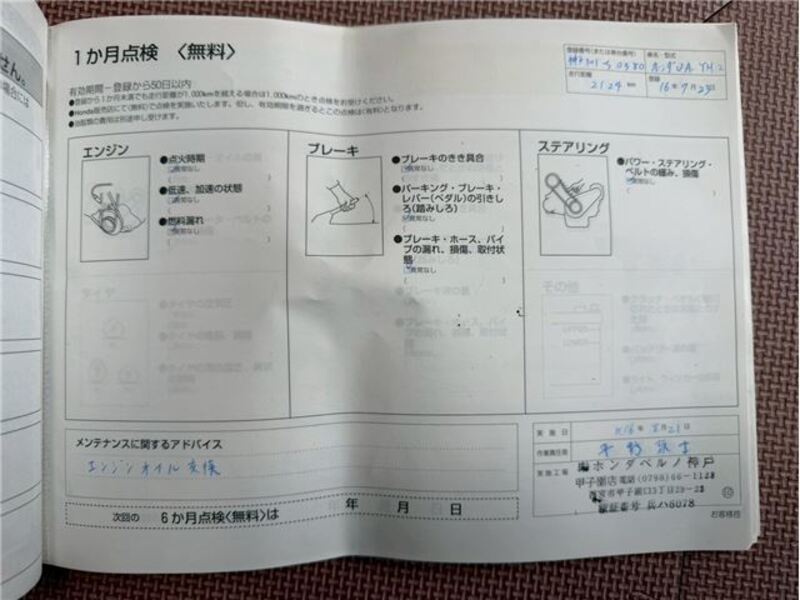 1か月点検 〈無料〉
有効期間－登録から50日以内
●登録から1か月未満でも走行距離が1,000kmを越える場合は1,000kmのとき点検をお受けください。
●Honda販売店にて〈無料〉で点検を実施いたします。但し、有効期間を過ぎるとこの点検は〈有料〉となります。
●油脂類の費用は別途申し受けます。
登録番号(または車台番号)
車名・型式
走行距離
2124 km
登録
16年7月24日
エンジン
●点火時期
異常なし
●低速、加速の状態
異常なし
●燃料漏れ
異常なし
ブレーキ
●ブレーキのきき具合
異常なし
●パーキング・ブレーキ・
レバー(ペダル)の引きし
ろ(踏みしろ)
異常なし
●ブレーキ・ホース、パイ
プの漏れ、損傷、取付状
態
異常なし
ステアリング
●パワー・ステアリング・
ベルトの緩み、損傷
異常なし
メンテナンスに関するアドバイス
エンジンオイル交換
次回の 6か月点検〈無料〉は 年 月 日
実施日
H16年8月21日
作業責任者
実施工場
ホンダベルノ神戸
甲子園店 電話(0798)66-1123
お客様控